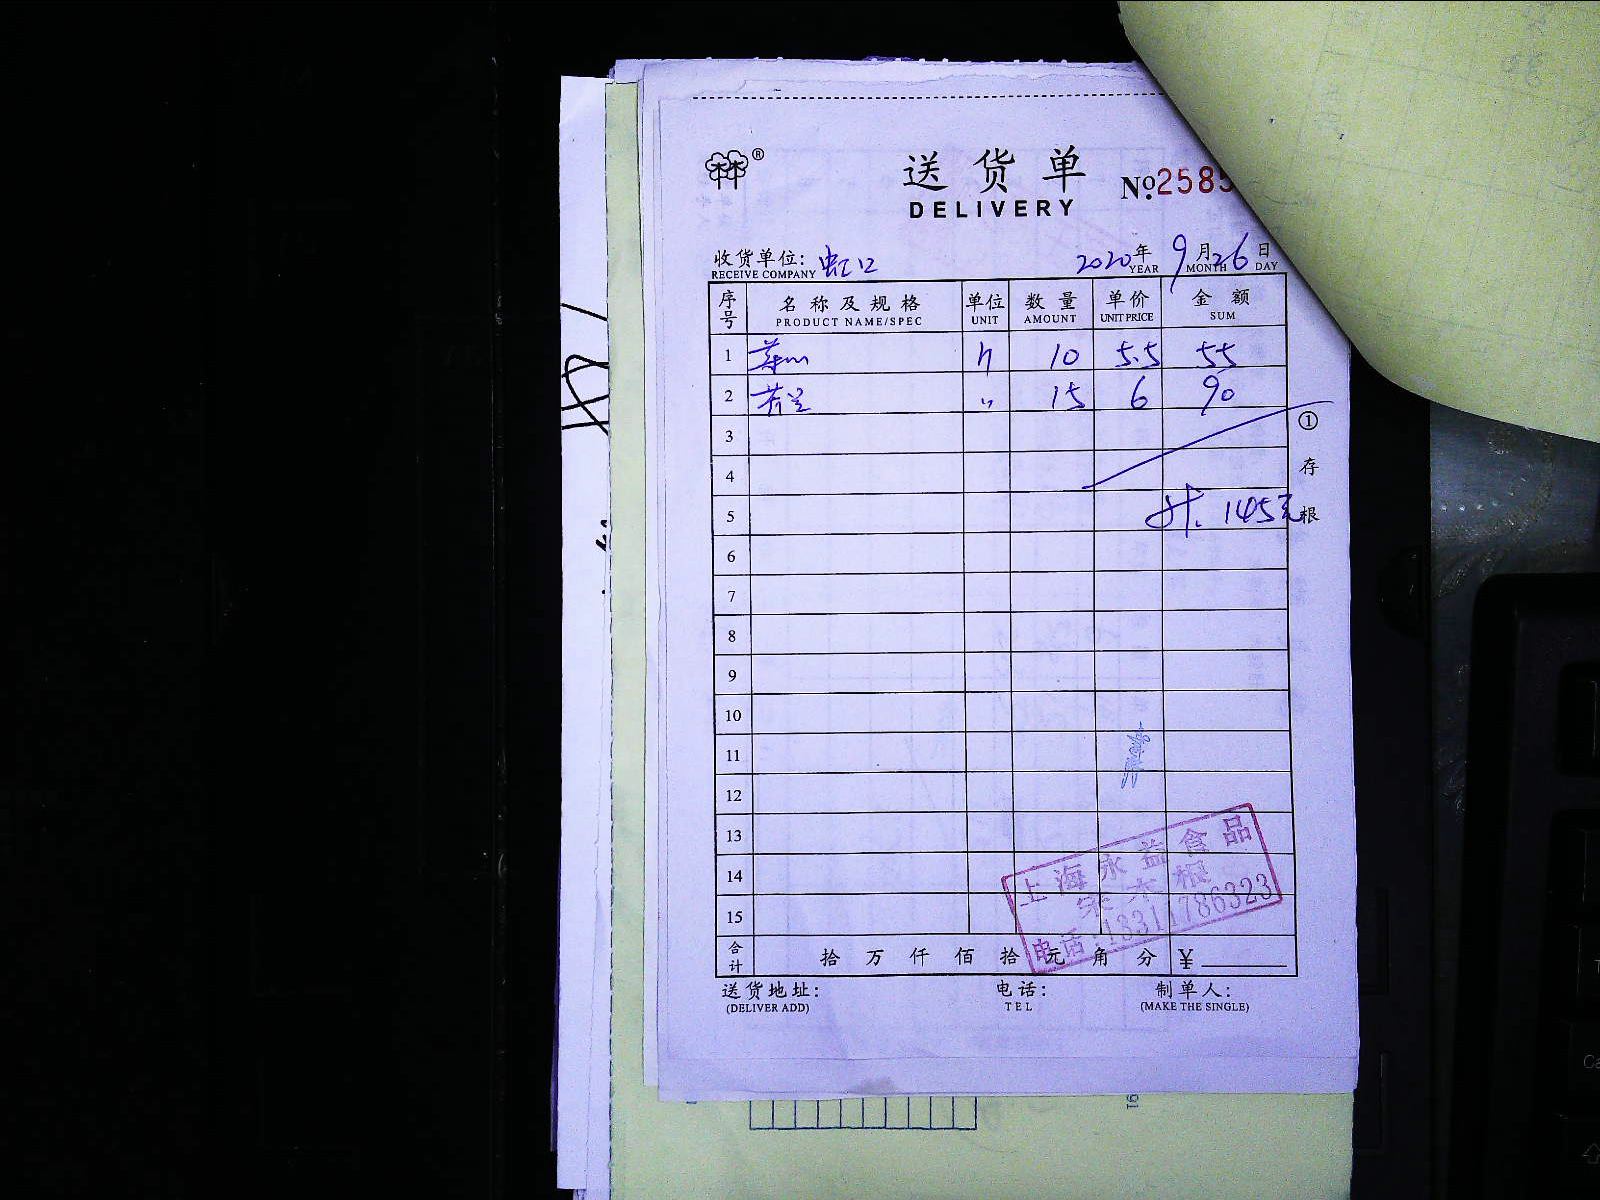 ®
送货单
DELIVERY
No.2585
收货单位: 虹口
RECEIVE COMPANY
2020年 9月26日
YEAR MONTH DAY
序号 名称及规格 单位 数量 单价 金额
PRODUCT NAME/SPEC UNIT AMOUNT UNIT PRICE SUM
1 10 5.5 55
2 〃 15 6 90
3
4
5 计. 145元
6
7
8
9
10
11
12
13
14
15
①存根
上海永益食品
电话:
合计 拾 万 仟 佰 拾 元 角 分 ¥
送货地址: 电话: 制单人:
(DELIVER ADD) TEL (MAKE THE SINGLE)
91